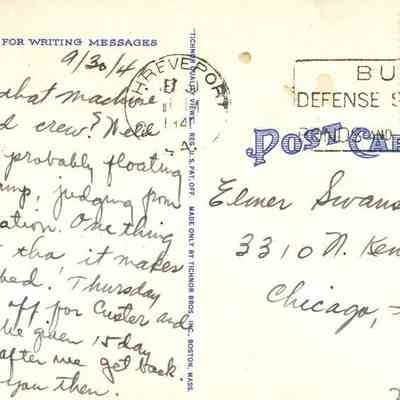 FOR WRITING MESSAGES
9/30/4
that machine
d crew? We'll
probably floating
judging from
ation. One thing
tho it makes
bed! Thursday
off for Custer and
be given 15 day
after we get back.
you then.
TICHNOR QUALITY VIEWS REG. U.S. PAT. OFF. MADE ONLY BY TICHNOR BROS., INC., BOSTON, MASS.
SHREVEPORT
BU
DEFENSE S
BONDS AND
POST CA
Elmer Swans
3310 N. Ken
Chicago,